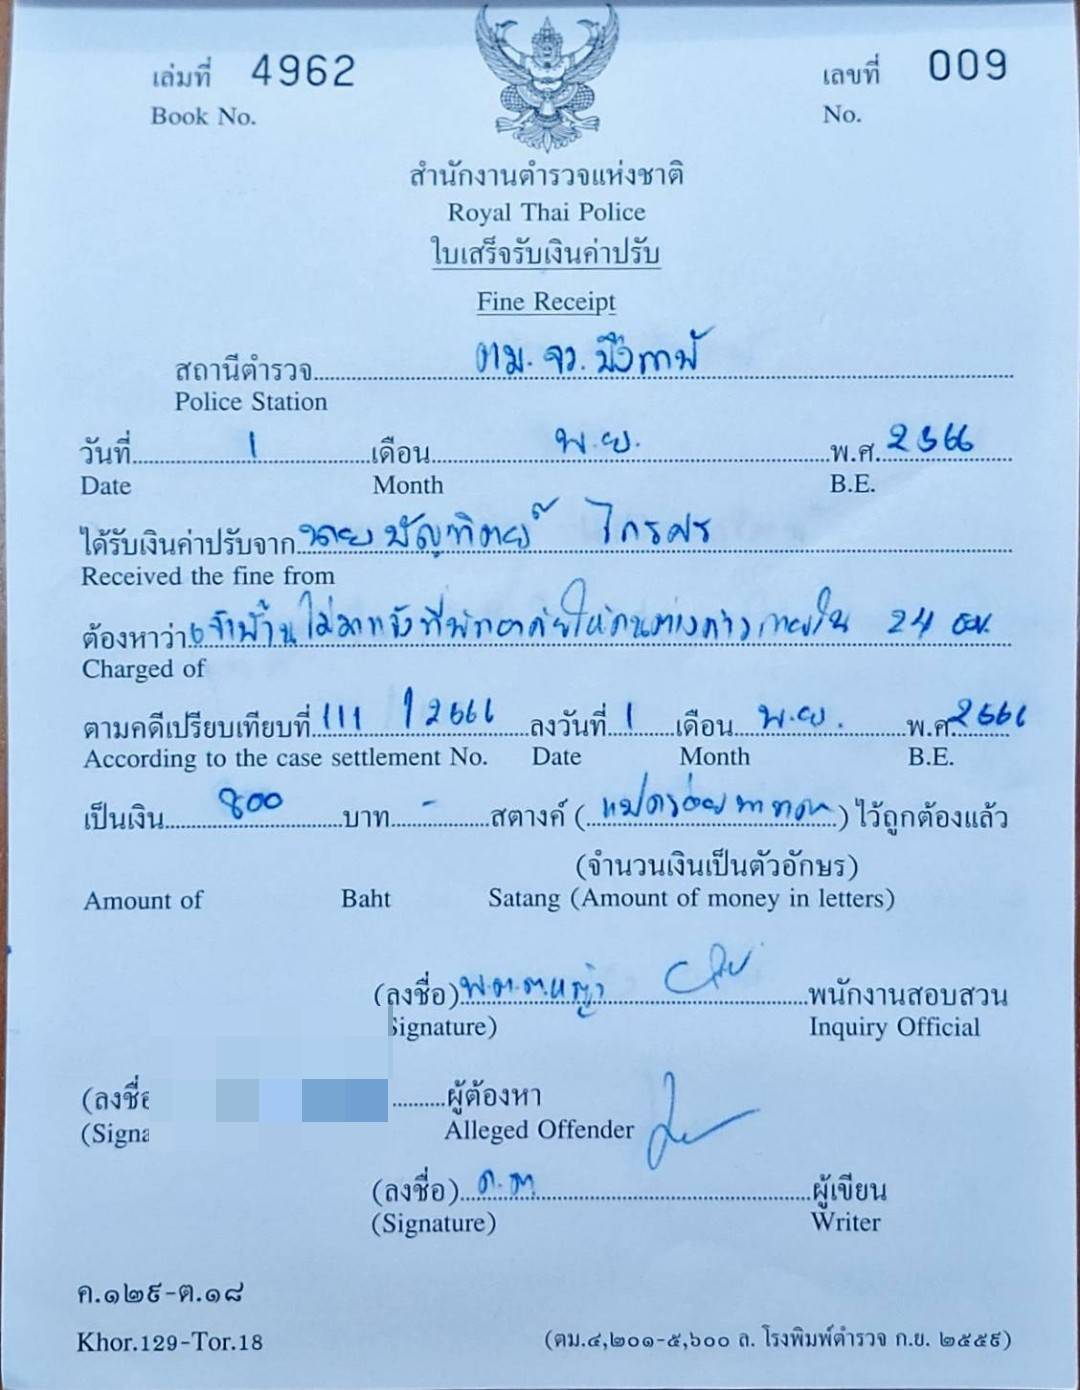 เล่มที่ 4962 เลขที่ 009
Book No. No.
สำนักงานตำรวจแห่งชาติ
Royal Thai Police
ใบเสร็จรับเงินค่าปรับ
Fine Receipt
สถานีตำรวจ ตม. จว. บึงกาฬ
Police Station
วันที่ 1 เดือน พ.ย. พ.ศ. 2566
Date Month B.E.
ได้รับเงินค่าปรับจาก นายบัณฑิตย์ ไกรศร
Received the fine from
ต้องหาว่า เจ้าบ้านไม่มาแจ้งที่พักอาศัยให้คนต่างด้าวภายใน 24 ชม.
Charged of
ตามคดีเปรียบเทียบที่ 111 / 2566 ลงวันที่ 1 เดือน พ.ย. พ.ศ. 2566
According to the case settlement No. Date Month B.E.
เป็นเงิน 800 บาท - สตางค์ (แปดร้อยบาทถ้วน) ไว้ถูกต้องแล้ว
(จำนวนเงินเป็นตัวอักษร)
Amount of Baht Satang (Amount of money in letters)
(ลงชื่อ) พ.ต.ต.หญิง พนักงานสอบสวน
Signature) Inquiry Official
(ลงชื่อ ผู้ต้องหา
(Signa Alleged Offender
(ลงชื่อ) ด.ต. ผู้เขียน
(Signature) Writer
ค.๑๒๙-ต.๑๘
Khor.129-Tor.18 (ตม.๔,๒๐๑-๕,๖๐๐ ล. โรงพิมพ์ตำรวจ ก.ย. ๒๕๕๙)